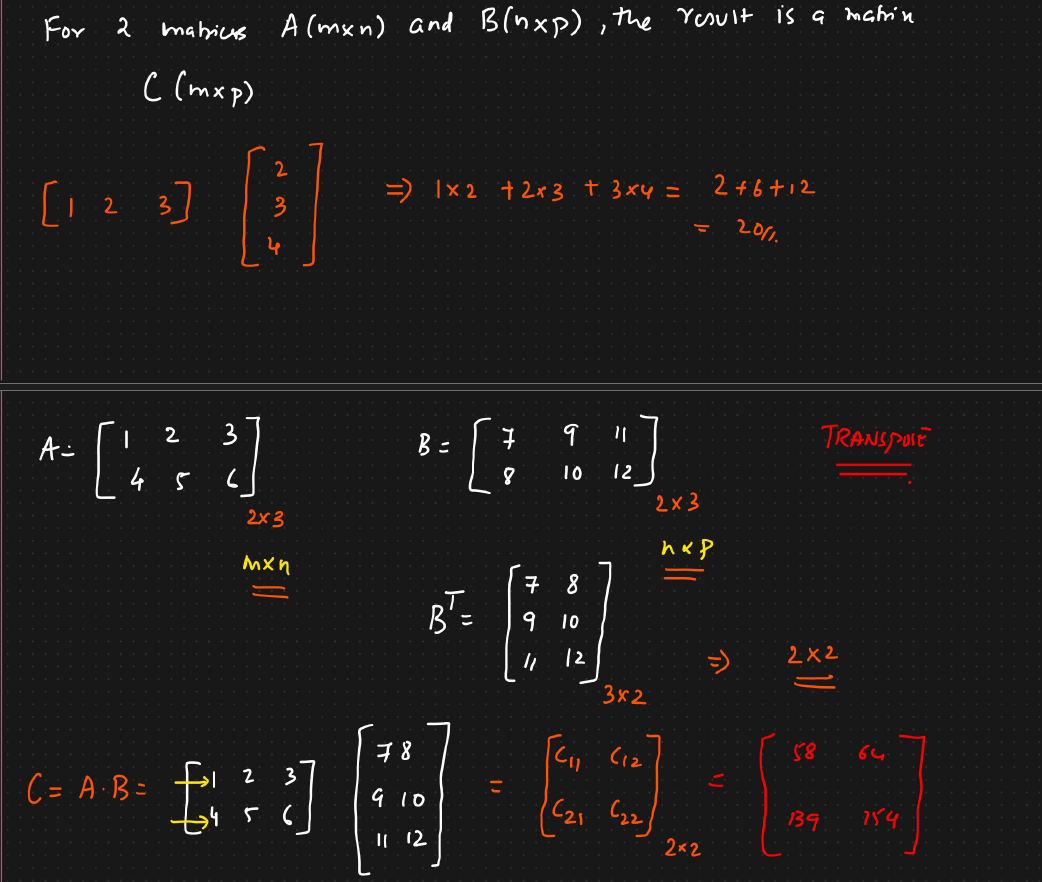 For 2 matrices A(m×n) and B(n×p), the result is a matrix
C (m×p)
[1 2 3] [2 3 4] ⇒ 1×2 + 2×3 + 3×4 = 2+6+12
= 20//.
A = [1 2 3
4 5 6] 2×3
m×n
B = [7 9 11
8 10 12] 2×3
n×p
TRANSPOSE
B^T = [7 8
9 10
11 12] 3×2
⇒ 2×2
C = A·B = [1 2 3
4 5 6] [7 8
9 10
11 12] = [C11 C12
C21 C22] 2×2 = [58 64
139 154]